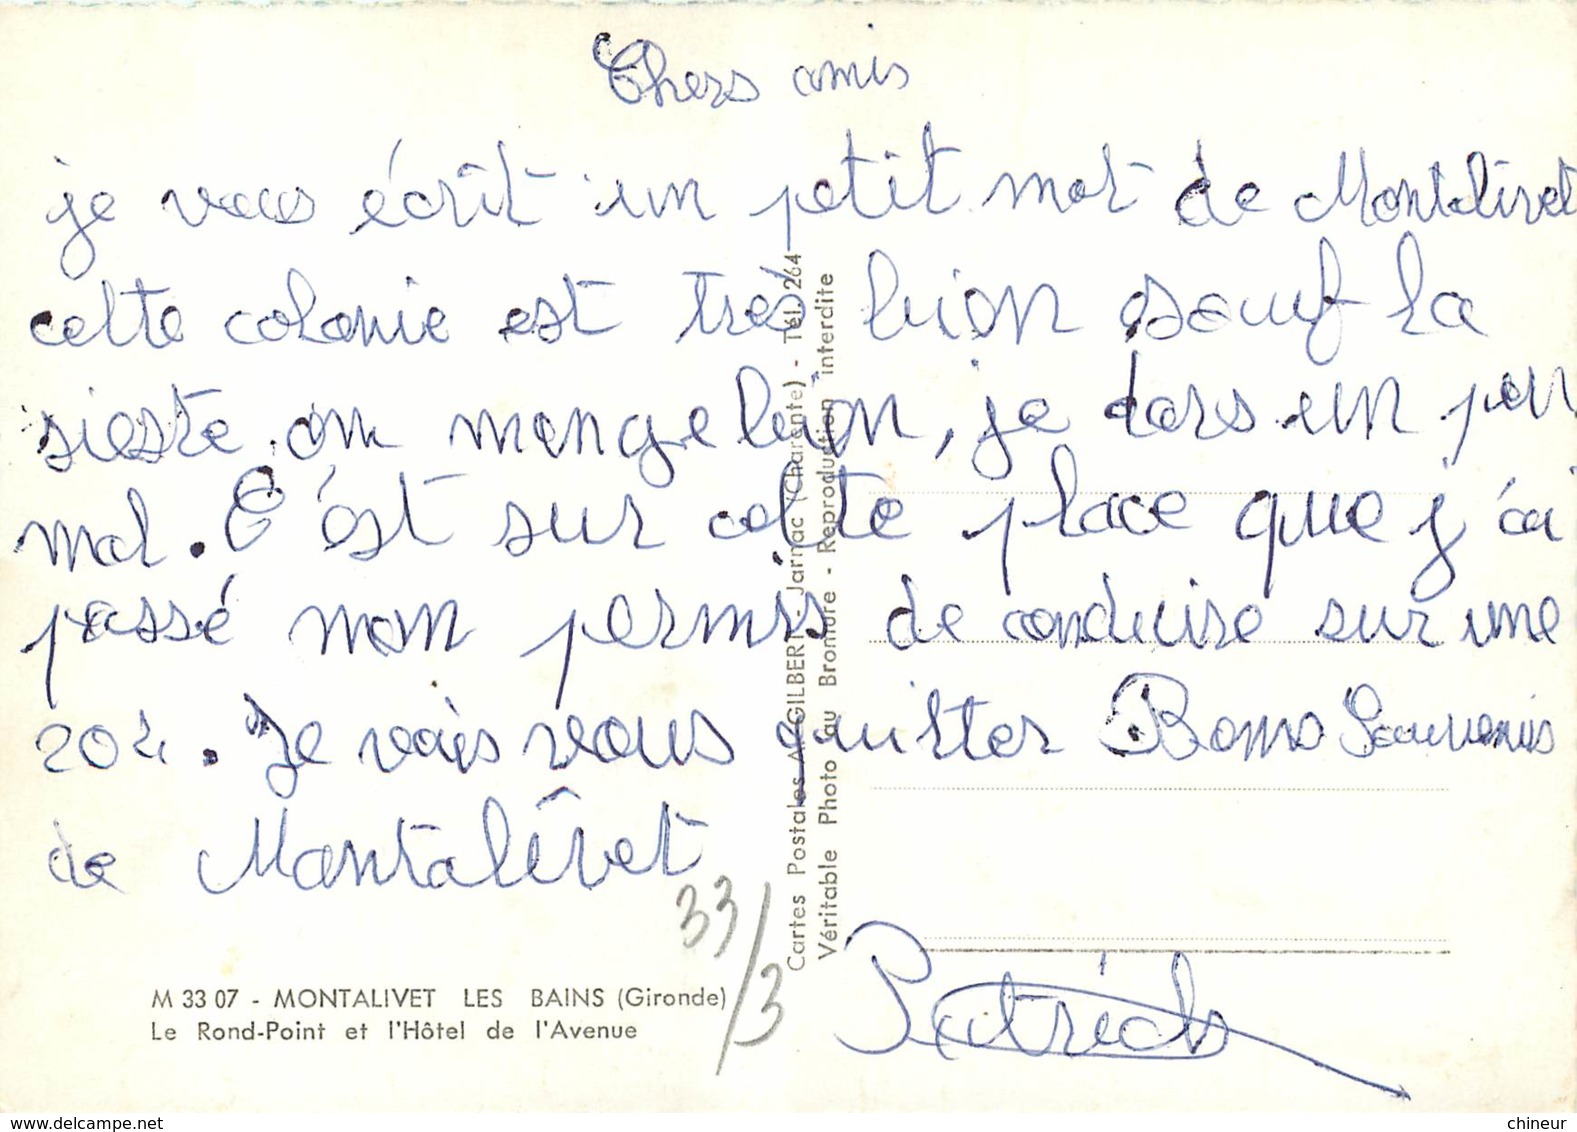 Chers amis
je vous écrit un petit mot de Montalivet
cette colonie est très bien sauf la
sieste. on mange bien, je dors un peu
mal. C'ést sur cette place que j'ai
passé mon permis de conduire sur une
204. Je vais vous quitter Bons Souvenirs
de Montalîvet
33/3
Patrick
M 33 07 - MONTALIVET LES BAINS (Gironde)
Le Rond-Point et l'Hôtel de l'Avenue
Cartes Postales A. GILBERT - Jarnac (Charente) - Tél. 264
Véritable Photo au Bromure - Reproduction interdite
www.delcampe.net
chineur